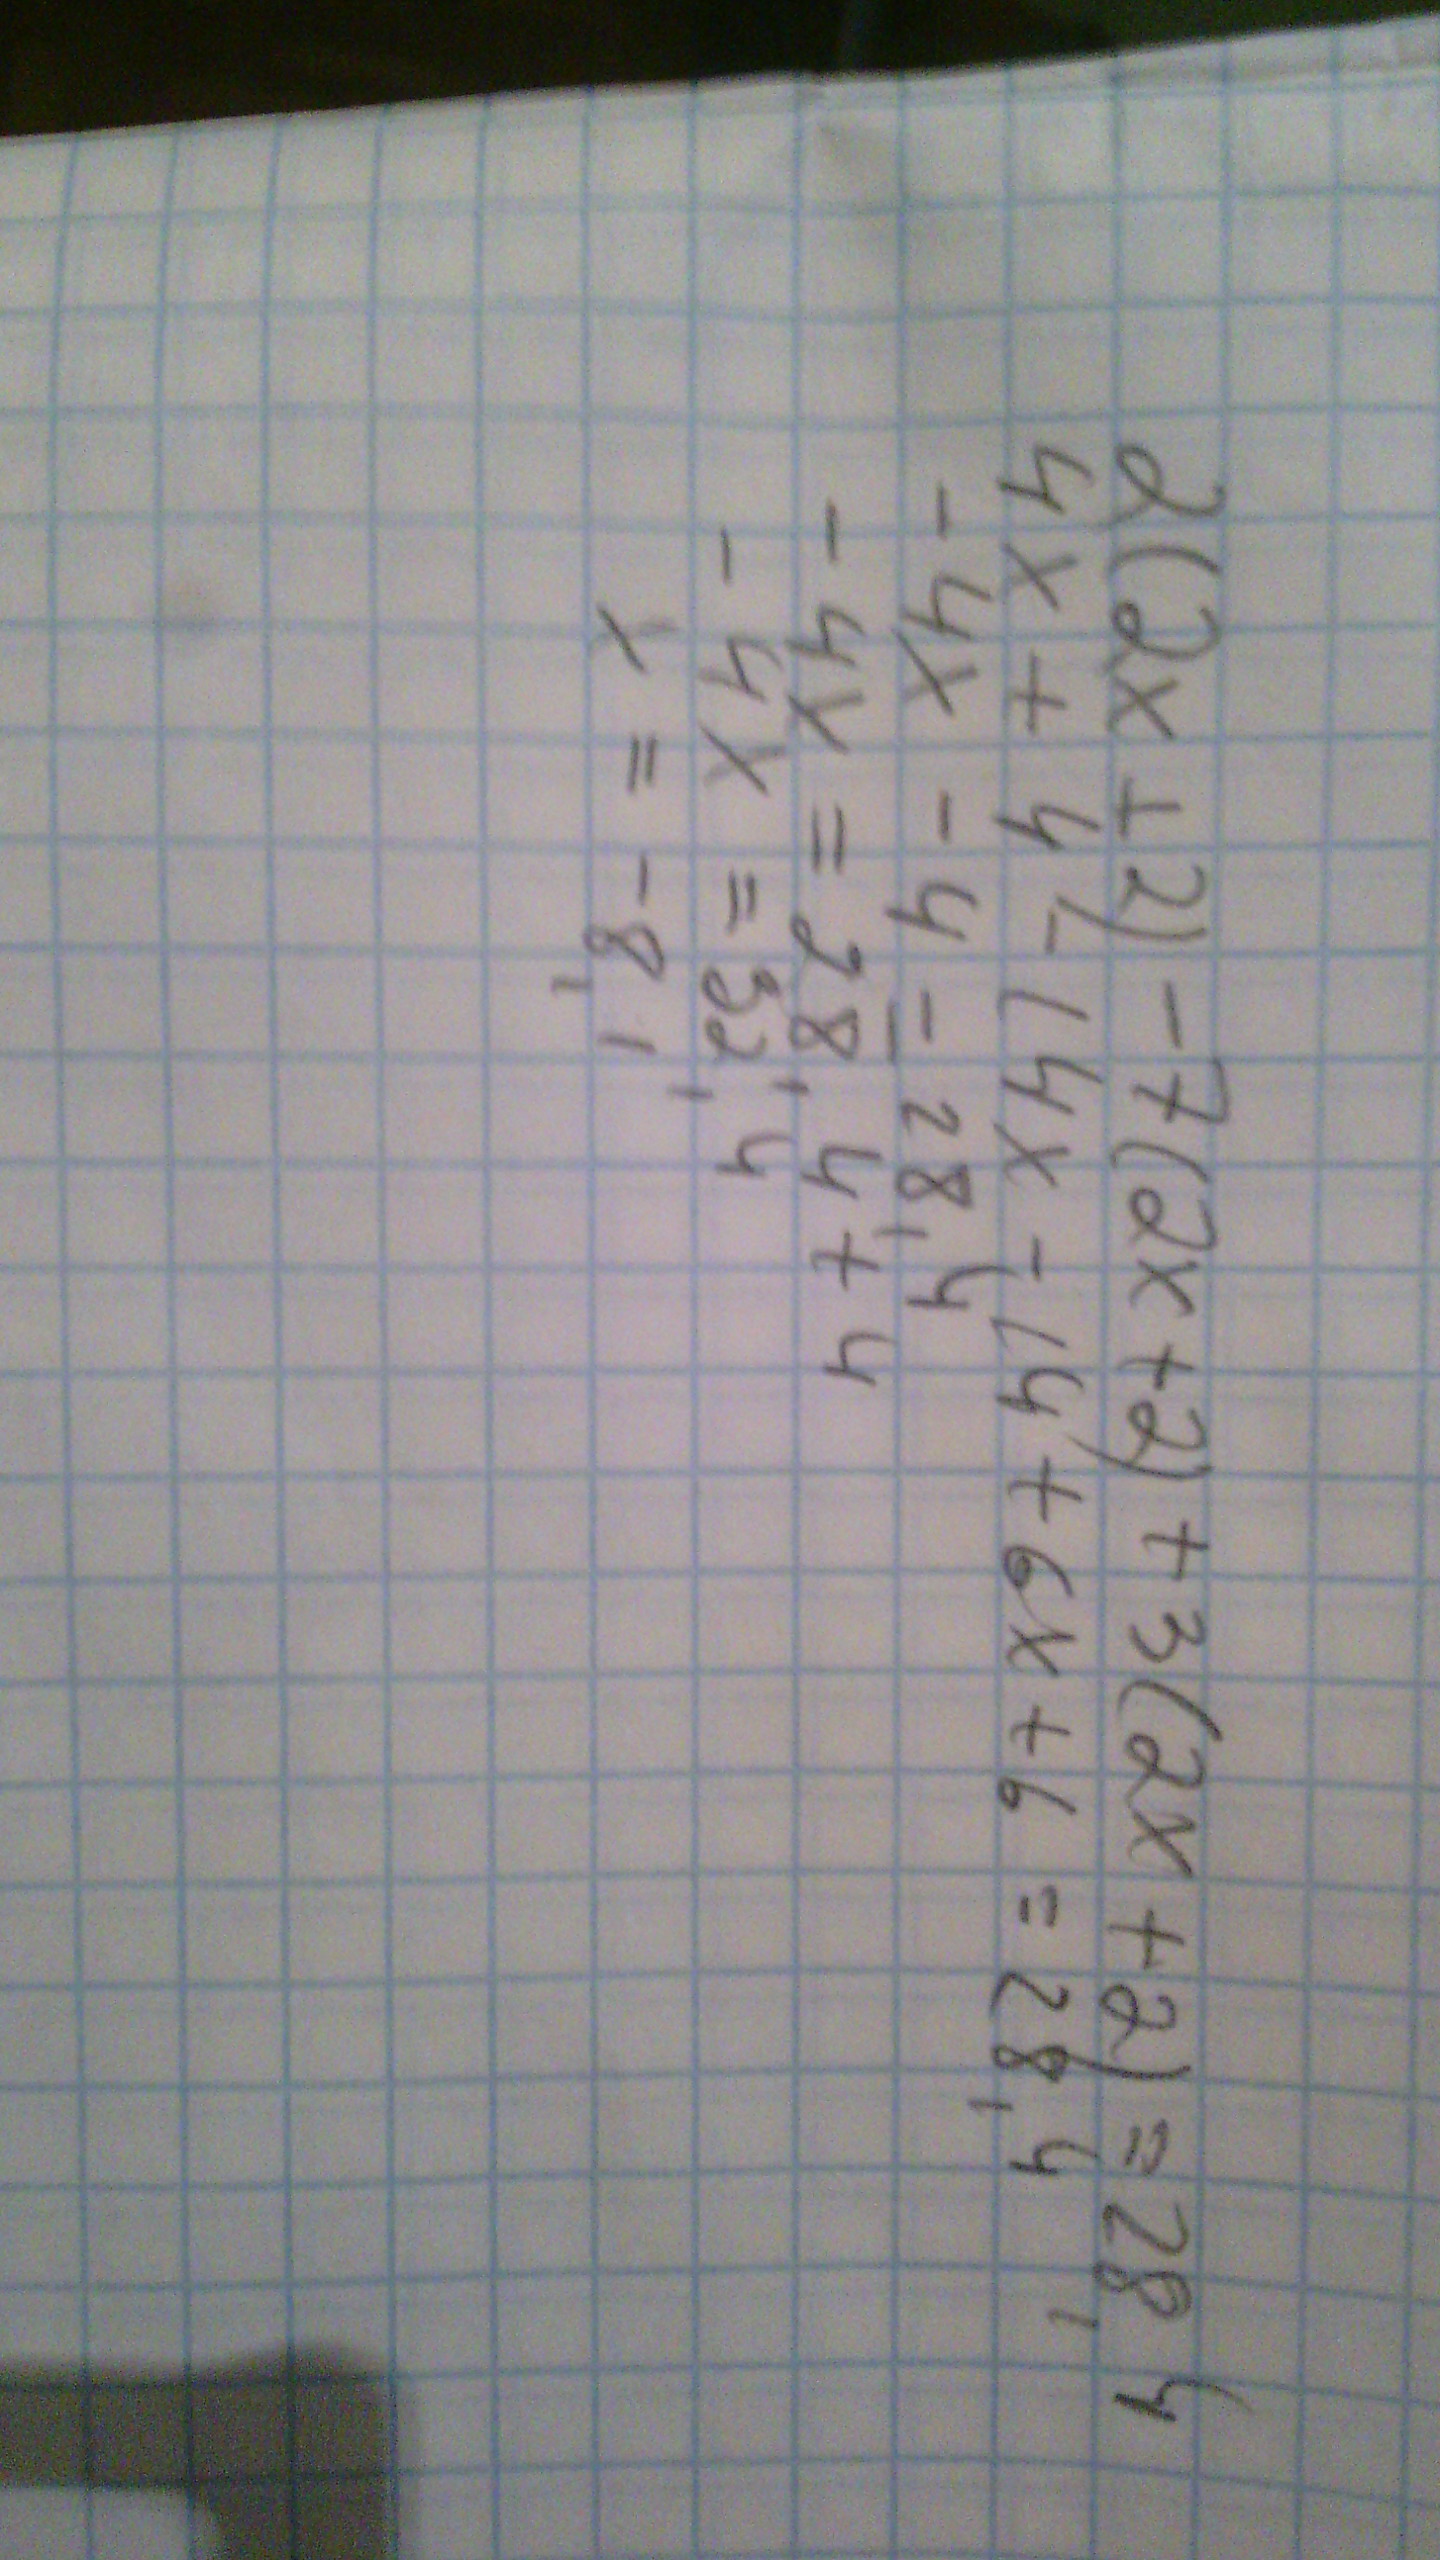 2(2x+2)-7(2x+2)+3(2x+2)=28,4
4x+4-14x-14+6x+6=28,4
-4x-4=28,4
-4x=28,4+4
-4x=32,4
x=-8,1